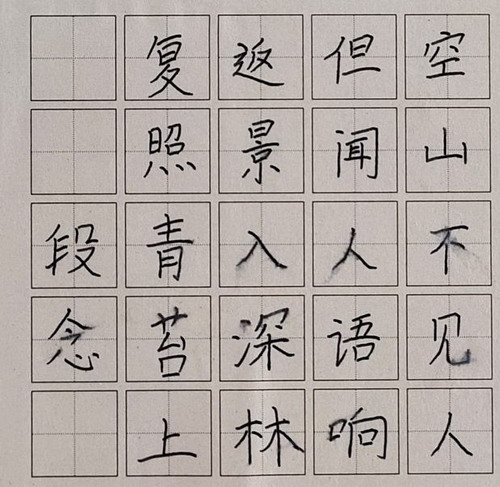 空山不见人
但闻人语响
返景入深林
复照青苔上
段念